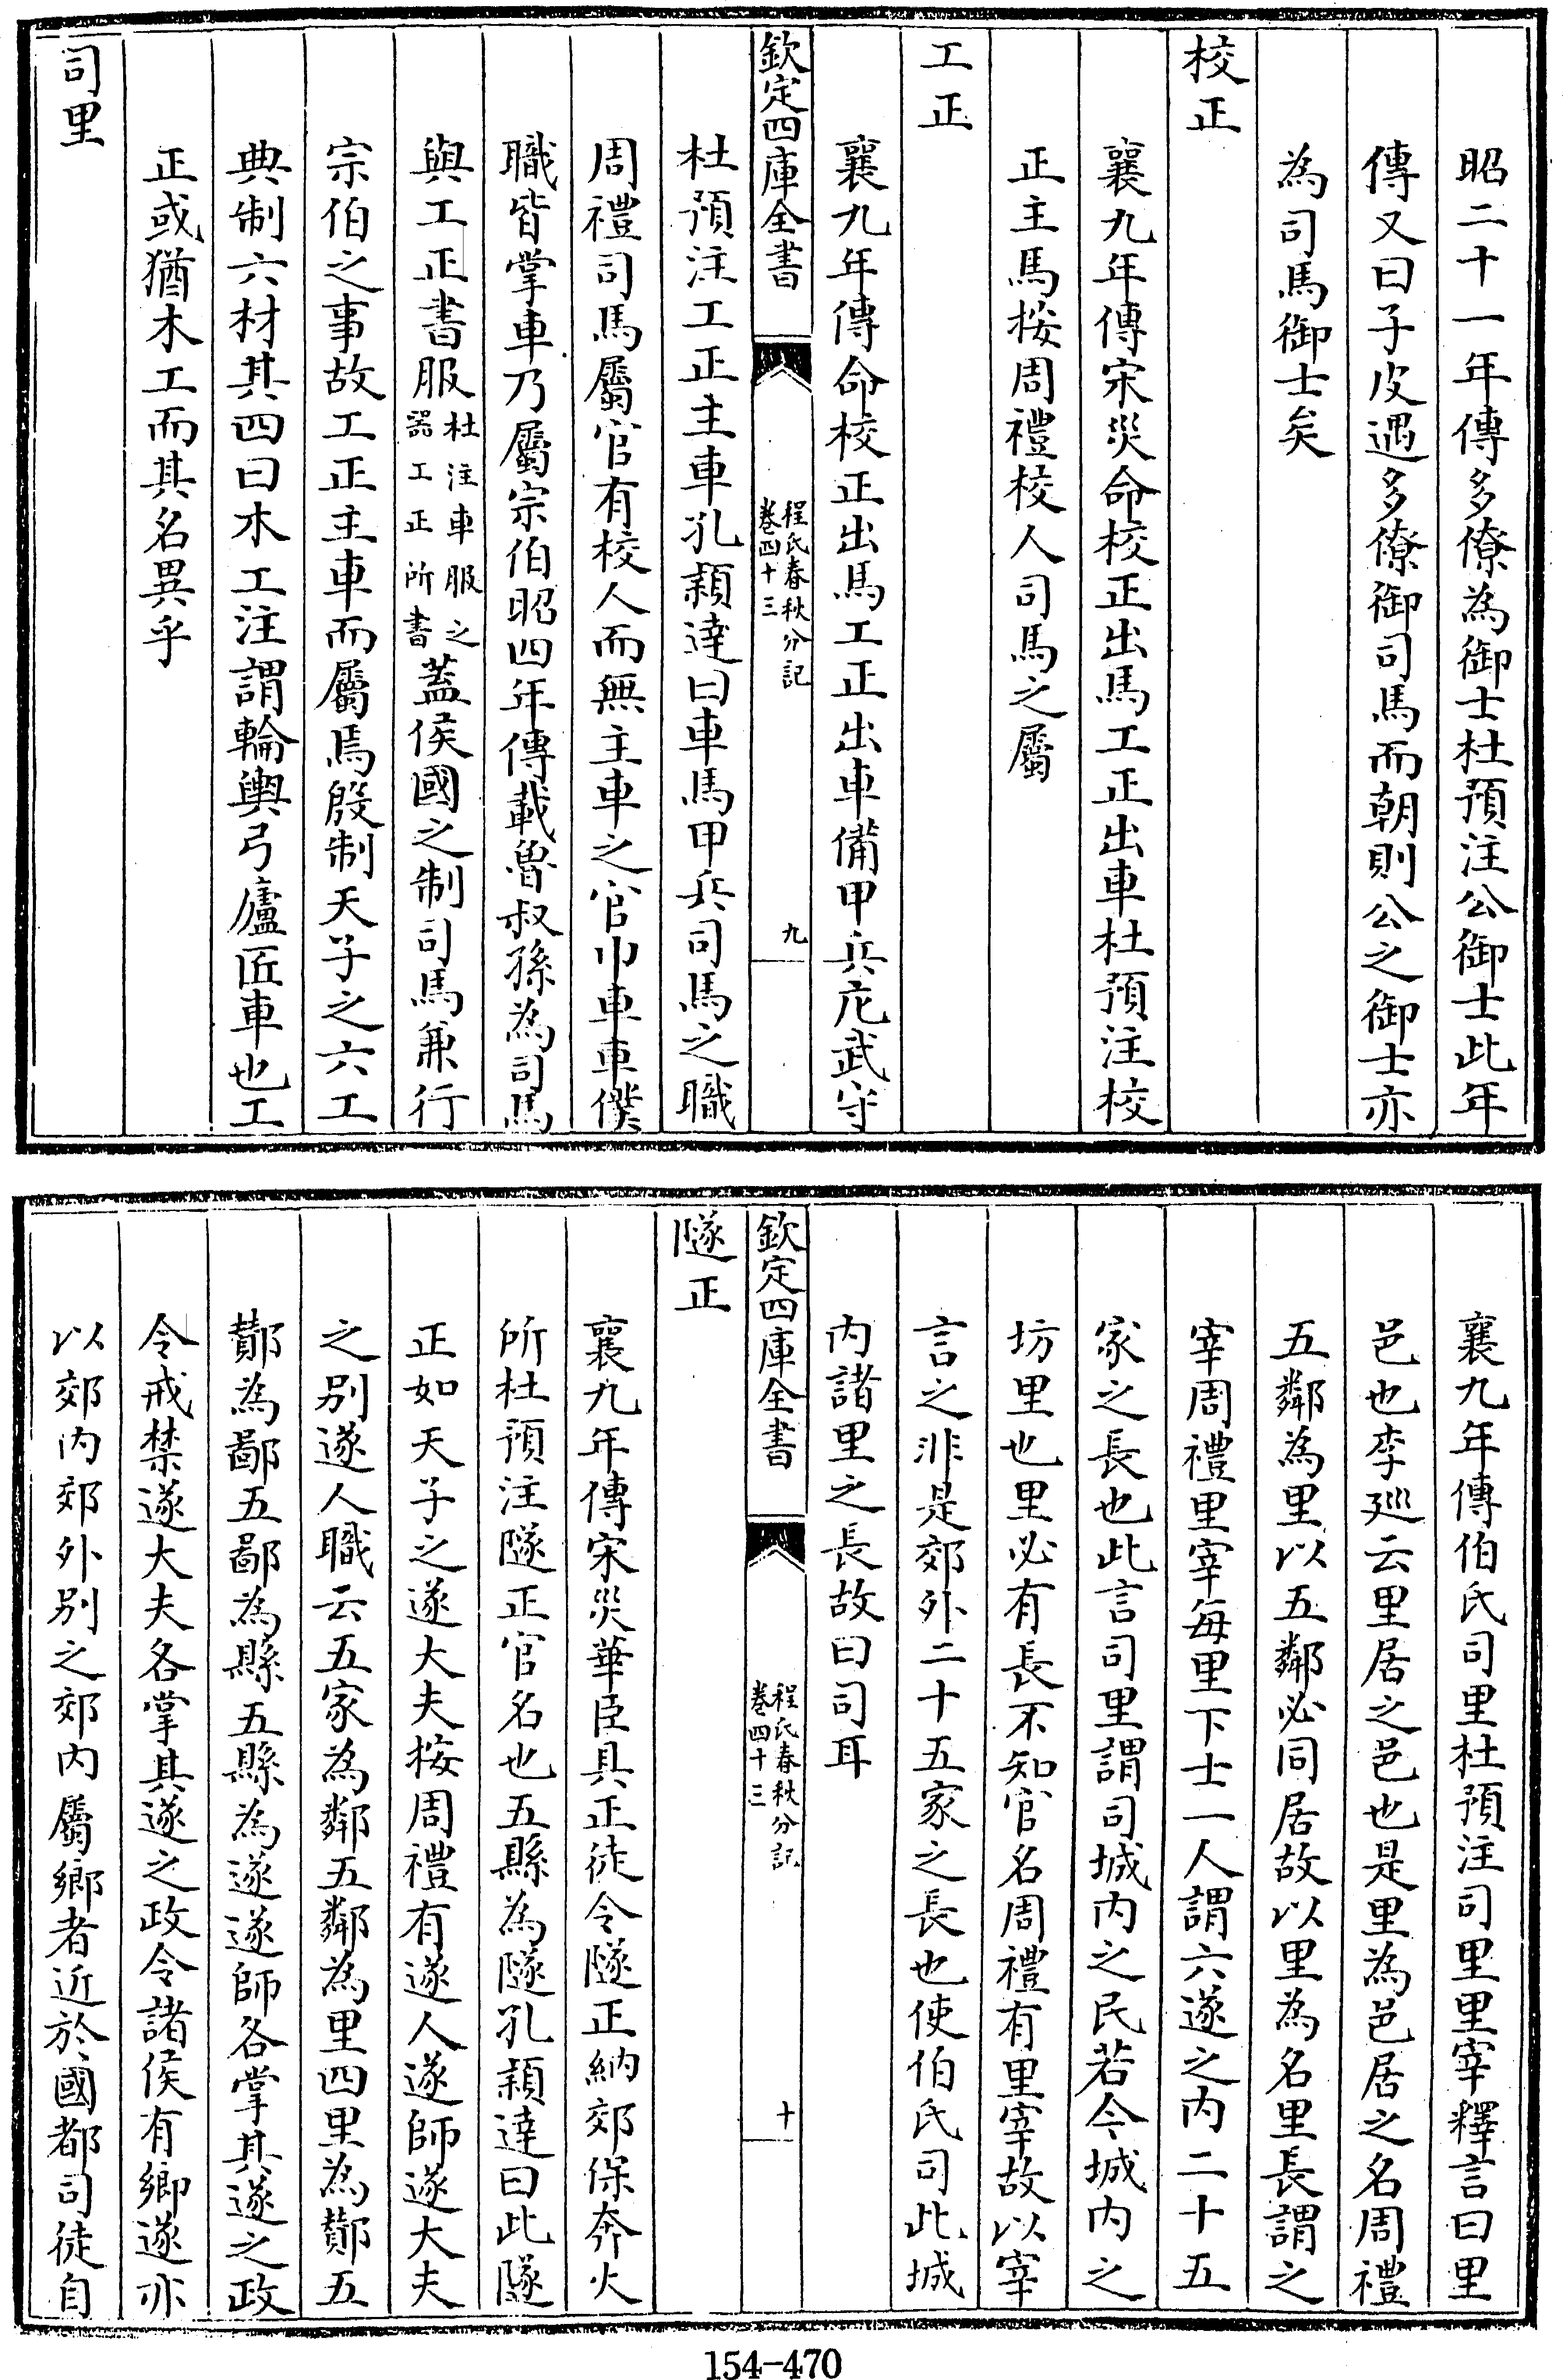 昭二十一年傳多僚為御士杜預注公御士此年
傳又曰子皮遇多僚御司馬而朝則公之御士亦
為司馬御士矣
校正
襄九年傳宋災命校正出馬工正出車杜預注校
正主馬按周禮校人司馬之屬
工正
襄九年傳命校正出馬工正出車備甲兵庀武守
欽定四庫全書
程氏春秋分記
卷四十三
九
杜預注工正主車孔穎達曰車馬甲兵司馬之職
周禮司馬屬官有校人而無主車之官巾車車僕
職皆掌車乃屬宗伯昭四年傳載魯叔孫為司馬
與工正書服杜注車服之器工正所書蓋侯國之制司馬兼行
宗伯之事故工正主車而屬馬殷制天子之六工
典制六材其四曰木工注謂輪輿弓廬匠車也工
正或猶木工而其名異乎
司里
襄九年傳伯氏司里杜預注司里里宰釋言曰里
邑也李廵云里居之邑也是里為邑居之名周禮
五鄰為里以五鄰必同居故以里為名里長謂之
宰周禮里宰每里下士一人謂六遂之內二十五
家之長也此言司里謂司城內之民若今城內之
坊里也里必有長不知官名周禮有里宰故以宰
言之非是郊外二十五家之長也使伯氏司此城
內諸里之長故曰司耳
欽定四庫全書
程氏春秋分記
卷四十三
十
隧正
襄九年傳宋災華臣具正徒令隧正納郊保奔火
所杜預注隧正官名也五縣為隧孔穎達曰此隧
正如天子之遂大夫按周禮有遂人遂師遂大夫
之別遂人職云五家為鄰五鄰為里四里為酇五
酇為鄙五鄙為縣五縣為遂遂師各掌其遂之政
令戒禁遂大夫各掌其遂之政令諸侯有鄉遂亦
以郊內郊外別之郊內屬鄉者近於國都司徒自
154-470